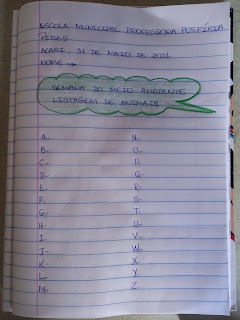 ESCOLA MUNICIPAL PROFESSORA PORFÍRIA
PIRES
ACARI, 31 DE MAIO DE 2021
NOME →
SEMANA DO MEIO AMBIENTE
LISTAGEM DE ANIMAIS
A-
B-
C-
D-
E-
F-
G-
H-
I-
J-
K-
L-
M-
N-
O-
P-
Q-
R-
S-
T-
U-
V-
W-
X-
Y-
Z-